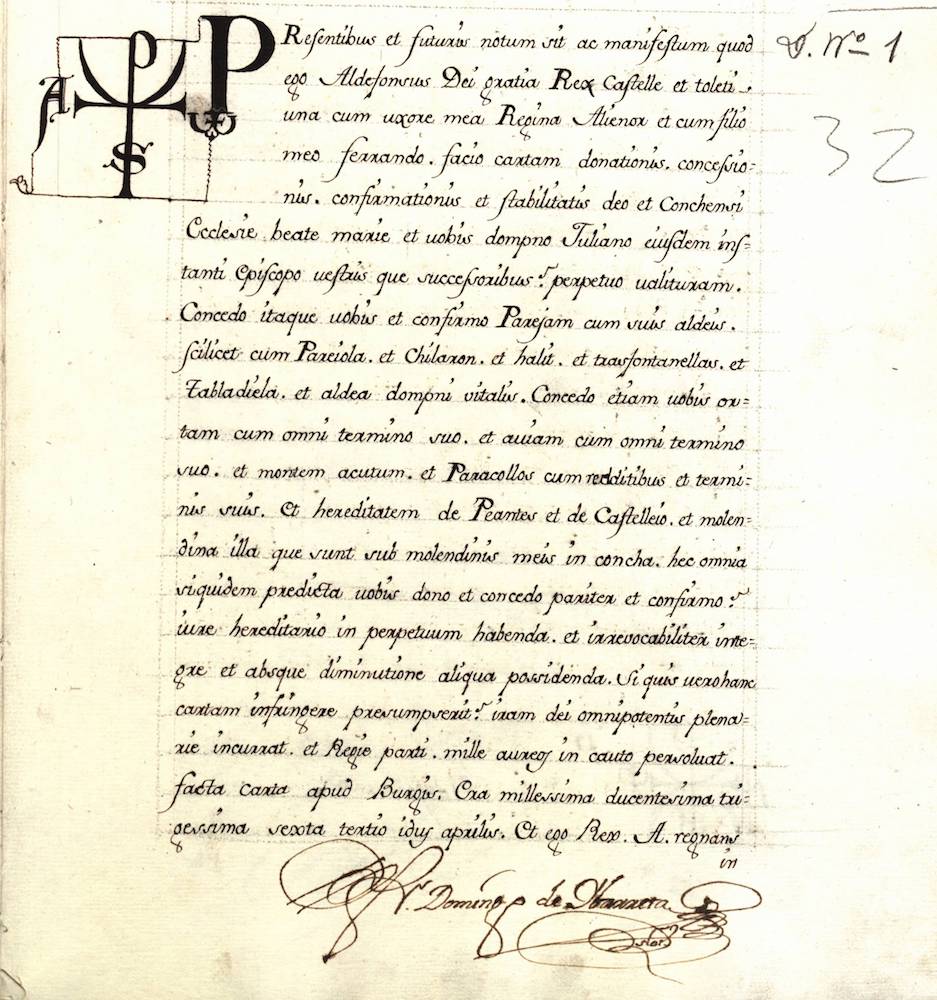 PResentibus et futuris notum sit ac manifestum quod
ego Aldefonsus Dei gratia Rex Castelle et toleti
una cum uxore mea Regina Alienor et cum filio
meo ferrando. facio cartam donationis. concessio=
nis. confirmationis et stabilitatis deo et Conchensi
Ecclesie beate marie et uobis dompno Iuliano eiusdem ins=
tanti Episcopo uestris que successoribus perpetuo ualituram.
Concedo itaque uobis et confirmo Parejam cum suis aldeis.
scilicet cum Pareiola. et Chilaron. et halit. et trasfontanellas. et
Tabladiela. et aldea dompni vitalis. Concedo etiam uobis or=
tam cum omni termino suo. et auiam cum omni termino
suo. et montem acutum. et Paracollos cum redditibus et termi=
nis suis. Et hereditatem de Peantes et de Castelleio. et molen=
dina illa que sunt sub molendinis meis in concha. hec omnia
siquidem predicta uobis dono et concedo pariter et confirmo
iure hereditario in perpetuum habenda. et irrevocabiliter inte=
gre et absque diminutione aliqua possidenda. Si quis uero hanc
cartam infringere presumpserit iram dei omnipotentis plena=
rie incurrat. et Regie parti. mille aureos in cauto persoluat.
facta carta apud Burgis. Era millessima ducentesima tri=
gessima sexta tertio idus aprilis. Et ego Rex. A. regnans
in
Domingo de
A S
D. Nº 1
32